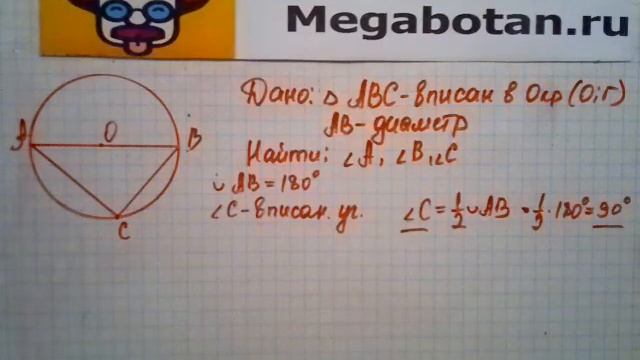 Megabotan.ru
Дано: Δ ABC - вписан в Окр (O; r)
AB - диаметр
Найти: ∠A, ∠B, ∠C
A O B
C
◡ AB = 180°
∠C - вписан. уг. ∠C = 1/2 ◡ AB = 1/2 · 180° = 90°